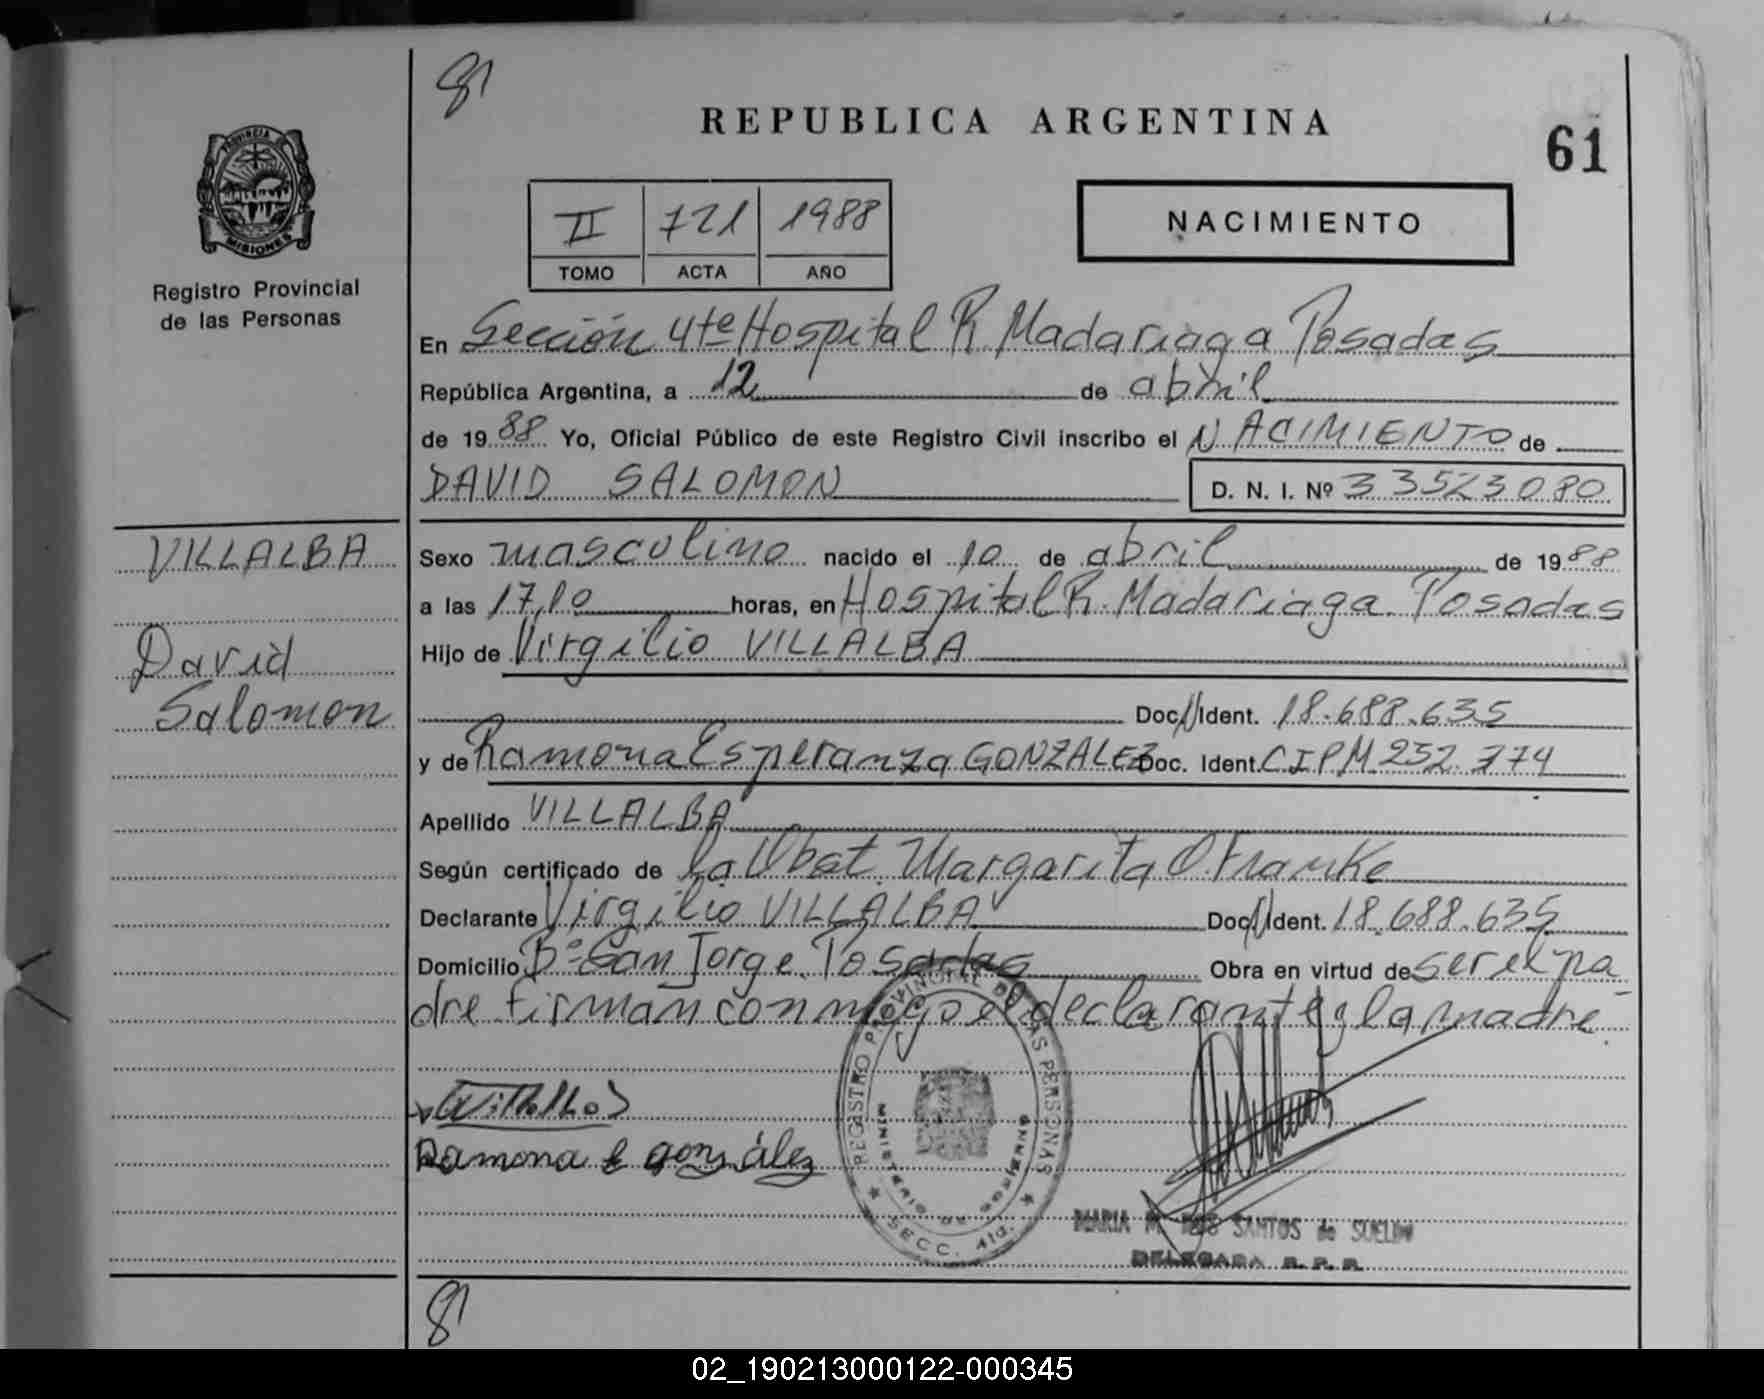 81
REPUBLICA ARGENTINA
61
PROVINCIA DE
MISIONES
Registro Provincial
de las Personas
II 721 1988
TOMO ACTA AÑO
NACIMIENTO
En Sección 4te Hospital R. Madariaga Posadas
República Argentina, a 12 de abril
de 1988 Yo, Oficial Público de este Registro Civil inscribo el NACIMIENTO de
DAVID SALOMON D. N. I. Nº 33523080
VILLALBA
David
Salomon
Sexo masculino nacido el 10 de abril de 1988
a las 17,10 horas, en Hospital R. Madariaga. Posadas
Hijo de Virgilio VILLALBA
Doc. Ident. 18.688.635
y de Ramona Esperanza GONZALEZ Doc. Ident. CIPM 232.774
Apellido VILLALBA
Según certificado de la Obst. Margarita O. Franke
Declarante Virgilio VILLALBA Doc. Ident. 18.688.635
Domicilio Bº San Jorge. Posadas Obra en virtud de ser el pa
dre firman conmigo el declarante y la madre.
Ramona E gonzález
REGISTRO PROVINCIAL DE LAS PERSONAS
MINISTERIO DE GOBIERNO
SECC. 4ta.
MARIA M. DOS SANTOS de
DELEGADA R. P. P.
81
02_190213000122-000345